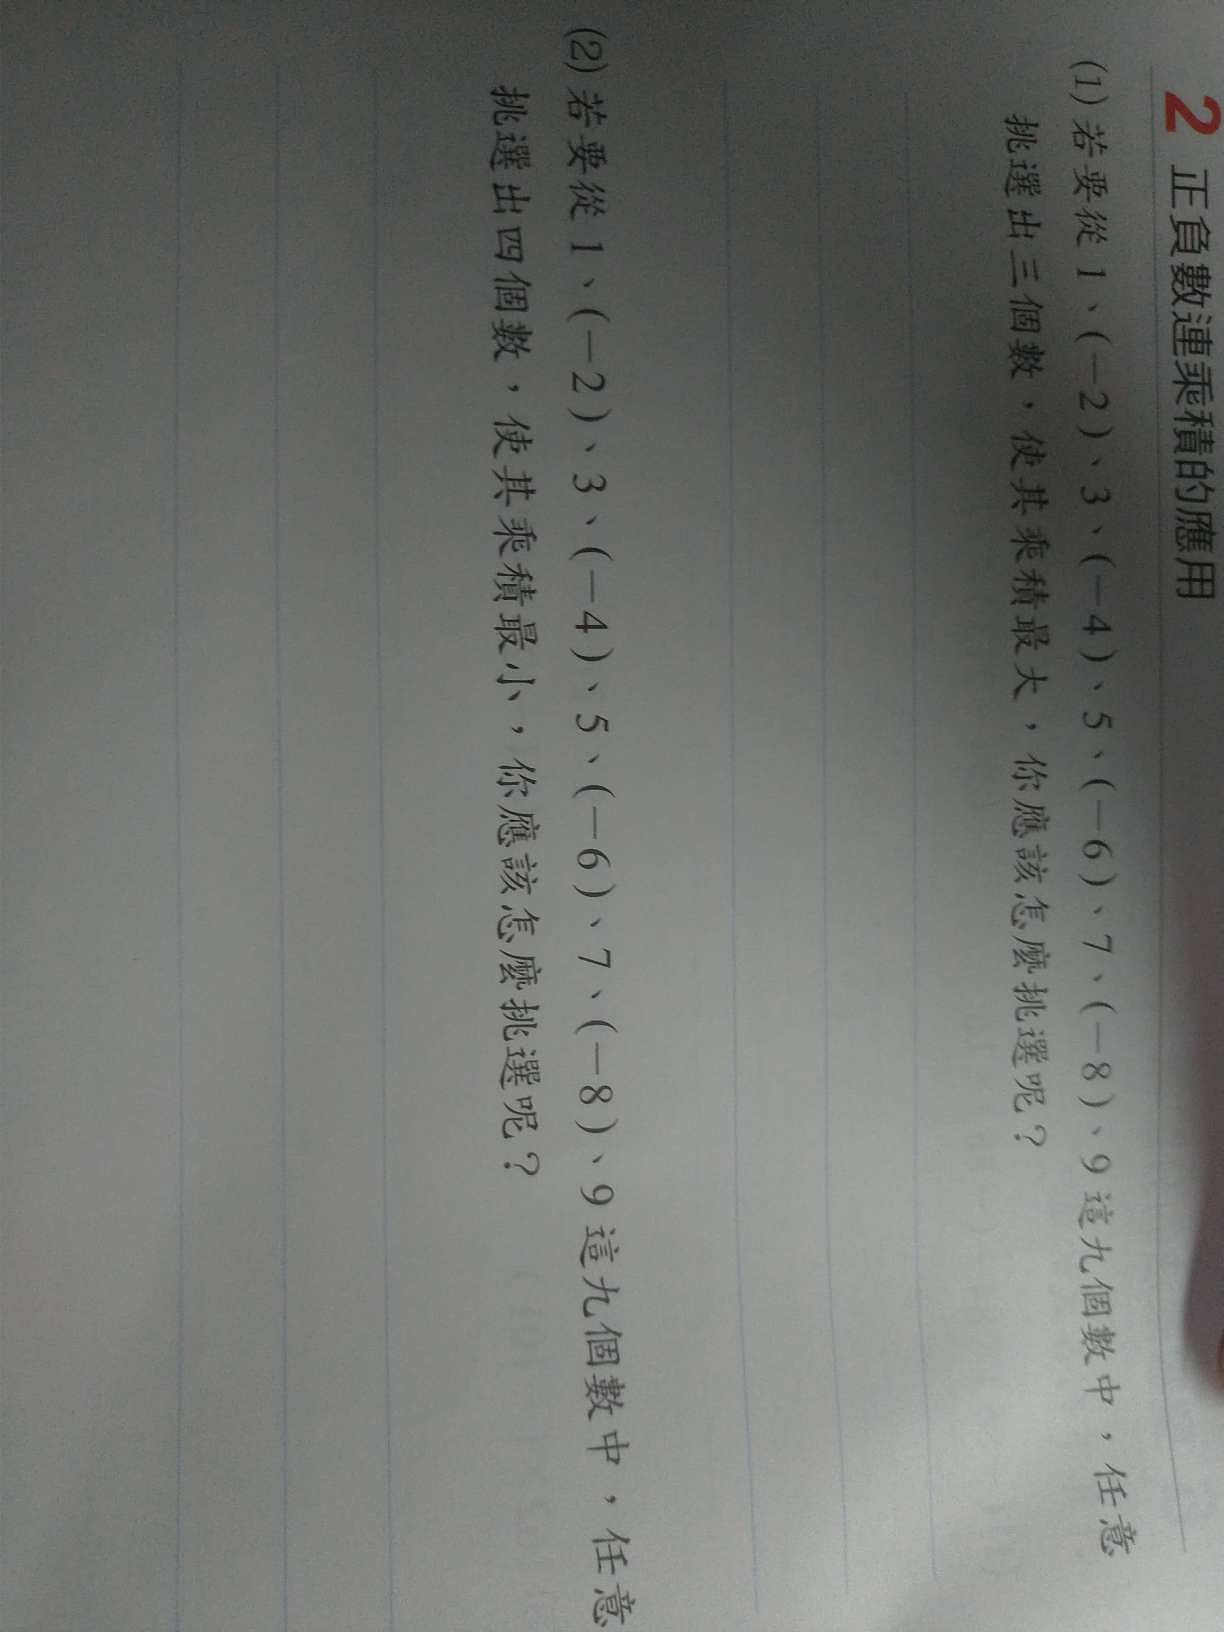 2 正負數連乘積的應用
(1) 若要從 1、(-2)、3、(-4)、5、(-6)、7、(-8)、9 這九個數中，任意
挑選出三個數，使其乘積最大，你應該怎麼挑選呢？
(2) 若要從 1、(-2)、3、(-4)、5、(-6)、7、(-8)、9 這九個數中，任意
挑選出四個數，使其乘積最小，你應該怎麼挑選呢？